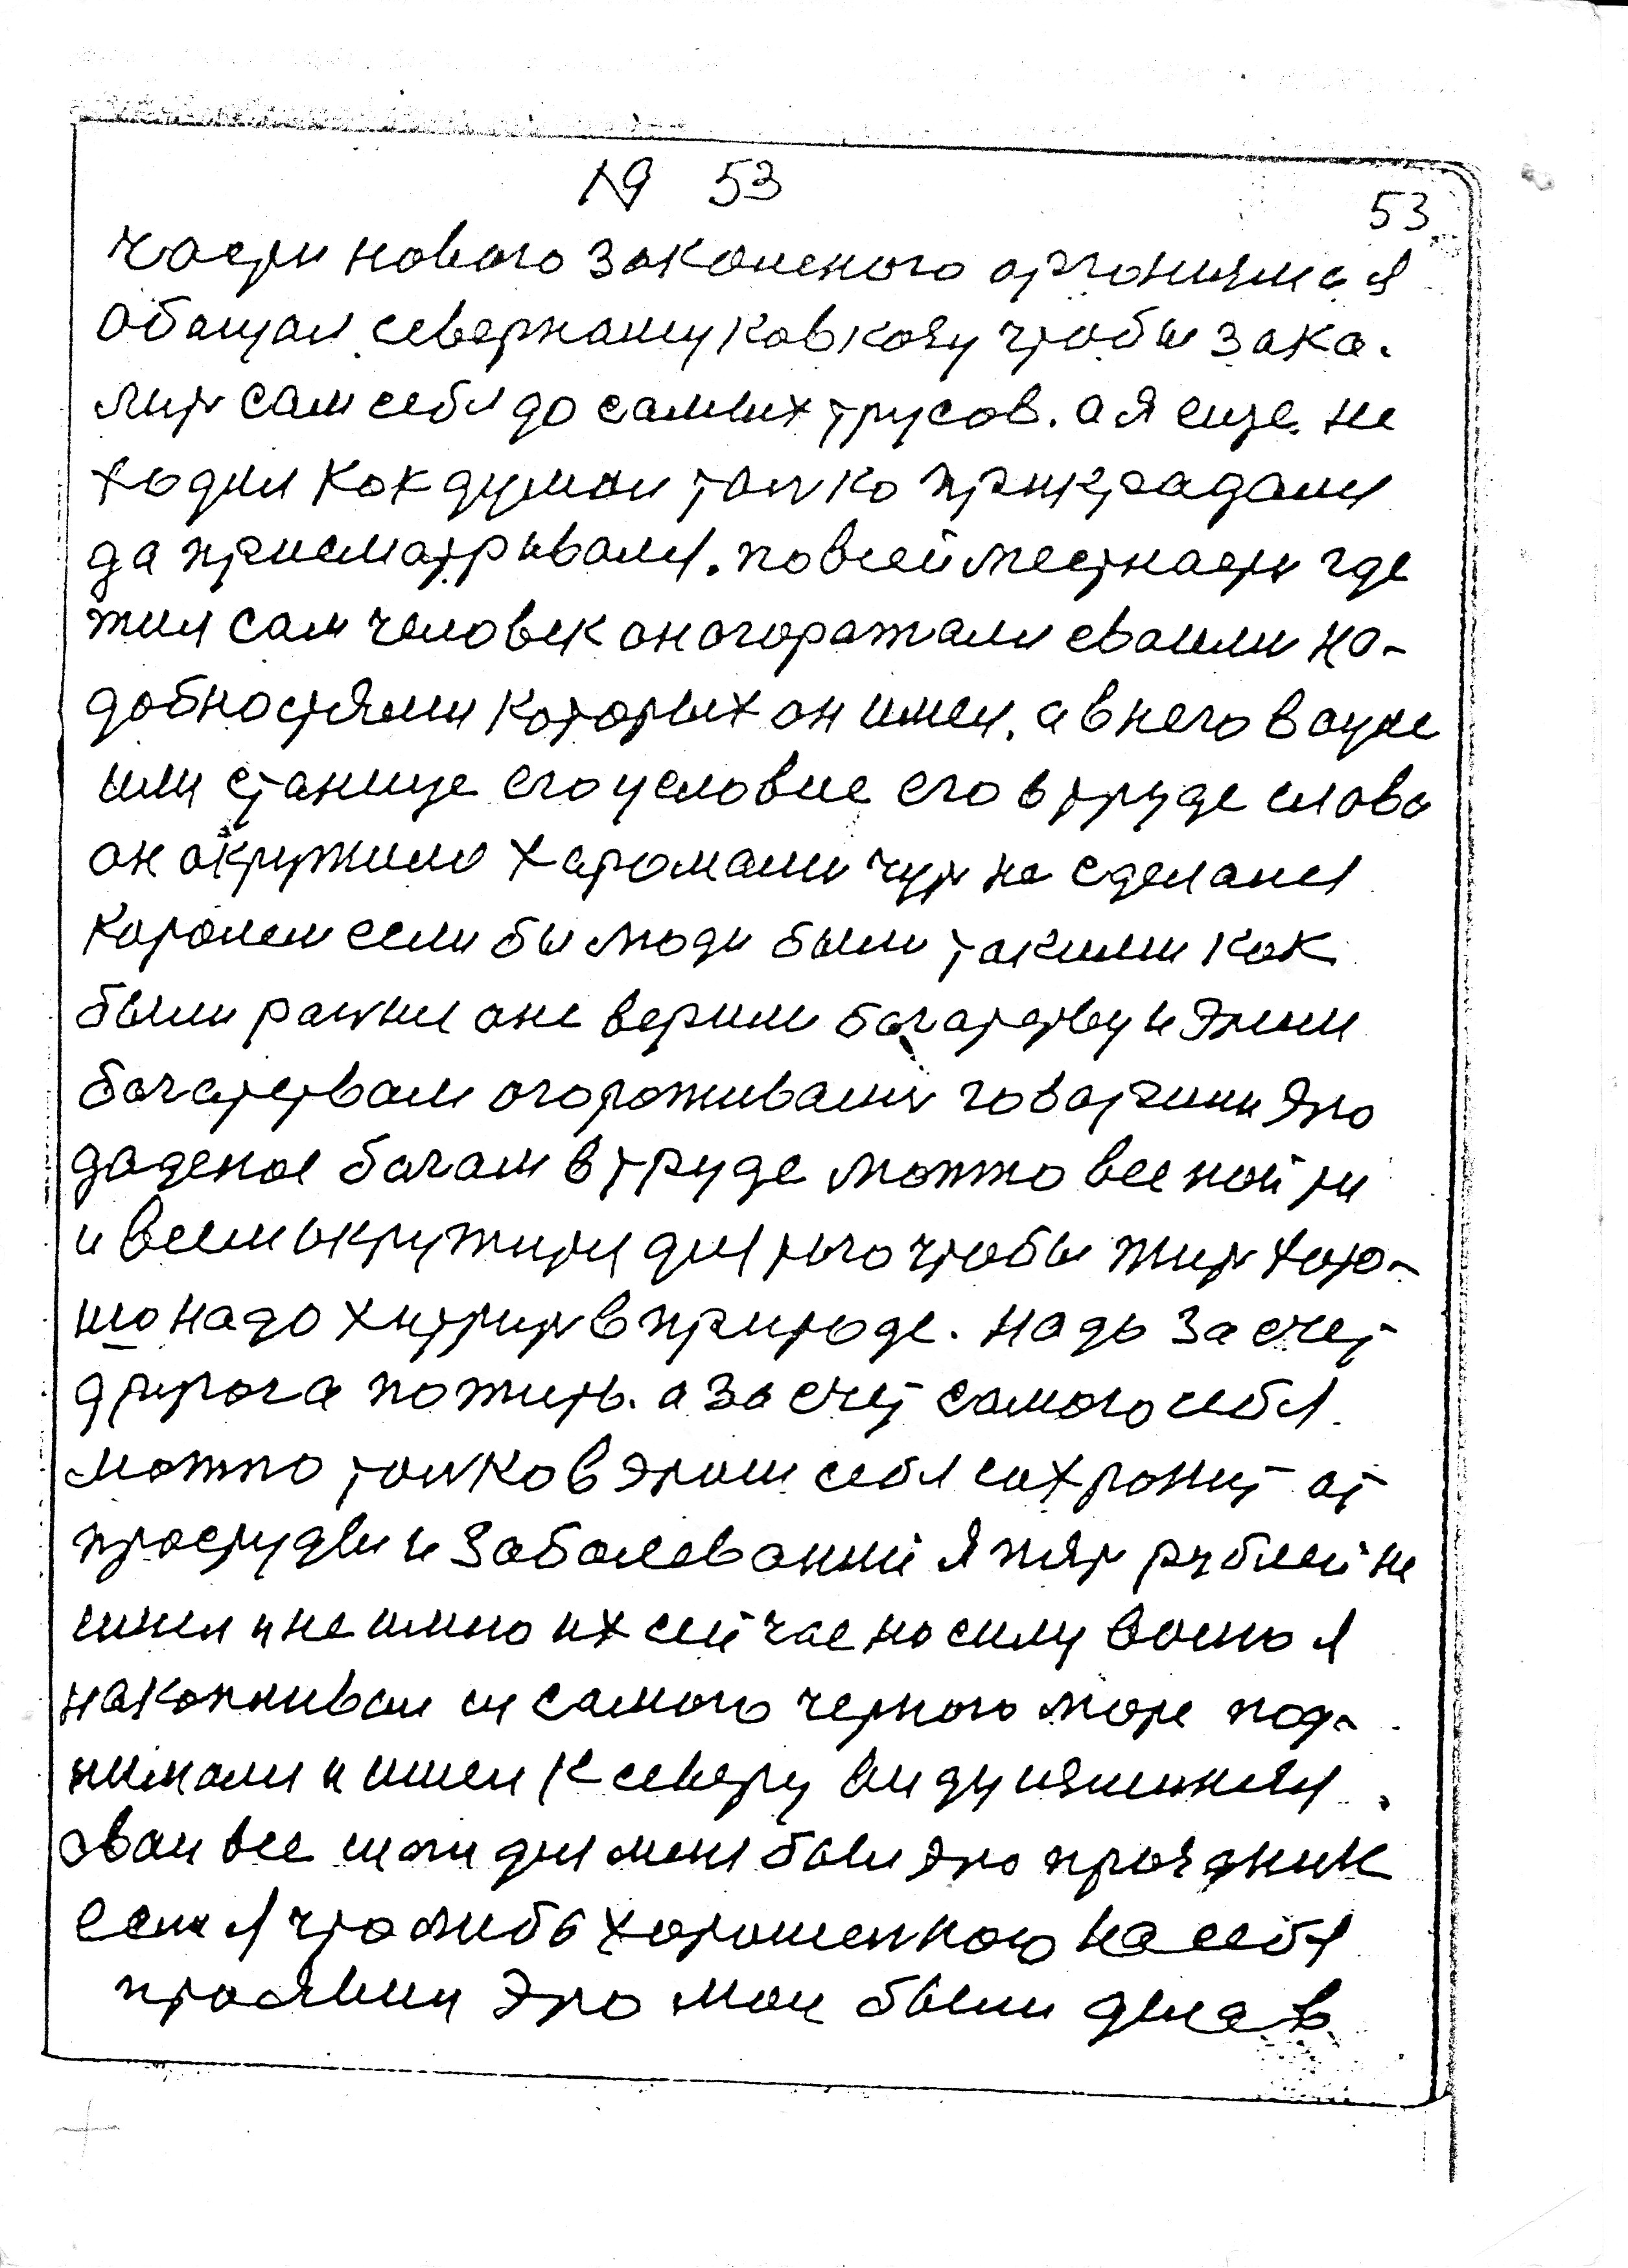 19 53
53
части нового закаленого организма я
обещал северному кавказу чтобы зака-
лит сам себя до самых трусов. а я еще не
ходил как думал толко прикрадался
да присматрывался. по всей местности где
жил сам человек он огоражали своими на-
добностями которых он имел. а в него в ауле
или станице его условие его в труде слова
он окружили хоромами чут не сделался
королем если бы люди были такими как
были ранше они верили богатству и этим
богатством огороживалис говорили это
даденое богам в труде можно все найти
и всем окружится для того чтобы жит хоро-
шо надо хитрит в природе. надо за счет
другога пожить. а за счет самого себя
можно толко в этом себя сохранит от
простуды и заболеваний я пят рублей не
имел и не имею их сейчас но силу волю я
накапливал из самого черного море под-
нимался и шел к северу виду изменялся
овал все шаги для меня были это праздник
если я что либо хорошенкого на себя
проявил это мои были дела в